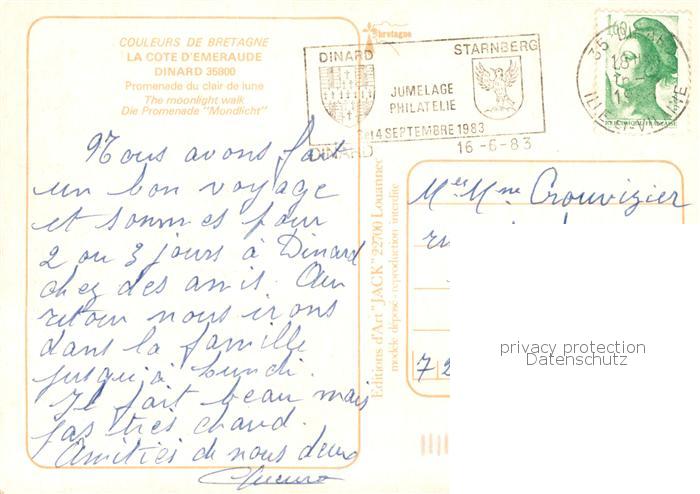 COULEURS DE BRETAGNE
LA COTE D'EMERAUDE
DINARD 35800
Promenade du clair de lune
The moonlight walk
Die Promenade "Mondlicht"
Bretagne
DINARD
STARNBERG
JUMELAGE
PHILATELIE
3 et 4 SEPTEMBRE 1983
DINARD
16-6-83
35 DINARD
ILLE-ET-VILAINE
1,60
Nous avons fait
un bon voyage
et sommes pour
2 ou 3 jours à Dinard
chez des amis. Au
retour nous irons
dans la famille
jusqu'à lundi.
Il fait beau mais
pas très chaud.
Amitiés de nous deux
Editions d'Art "JACK" 22700 Louannec
modèle déposé - reproduction interdite
Mr et Mme Crouvizier
72
privacy protection
Datenschutz